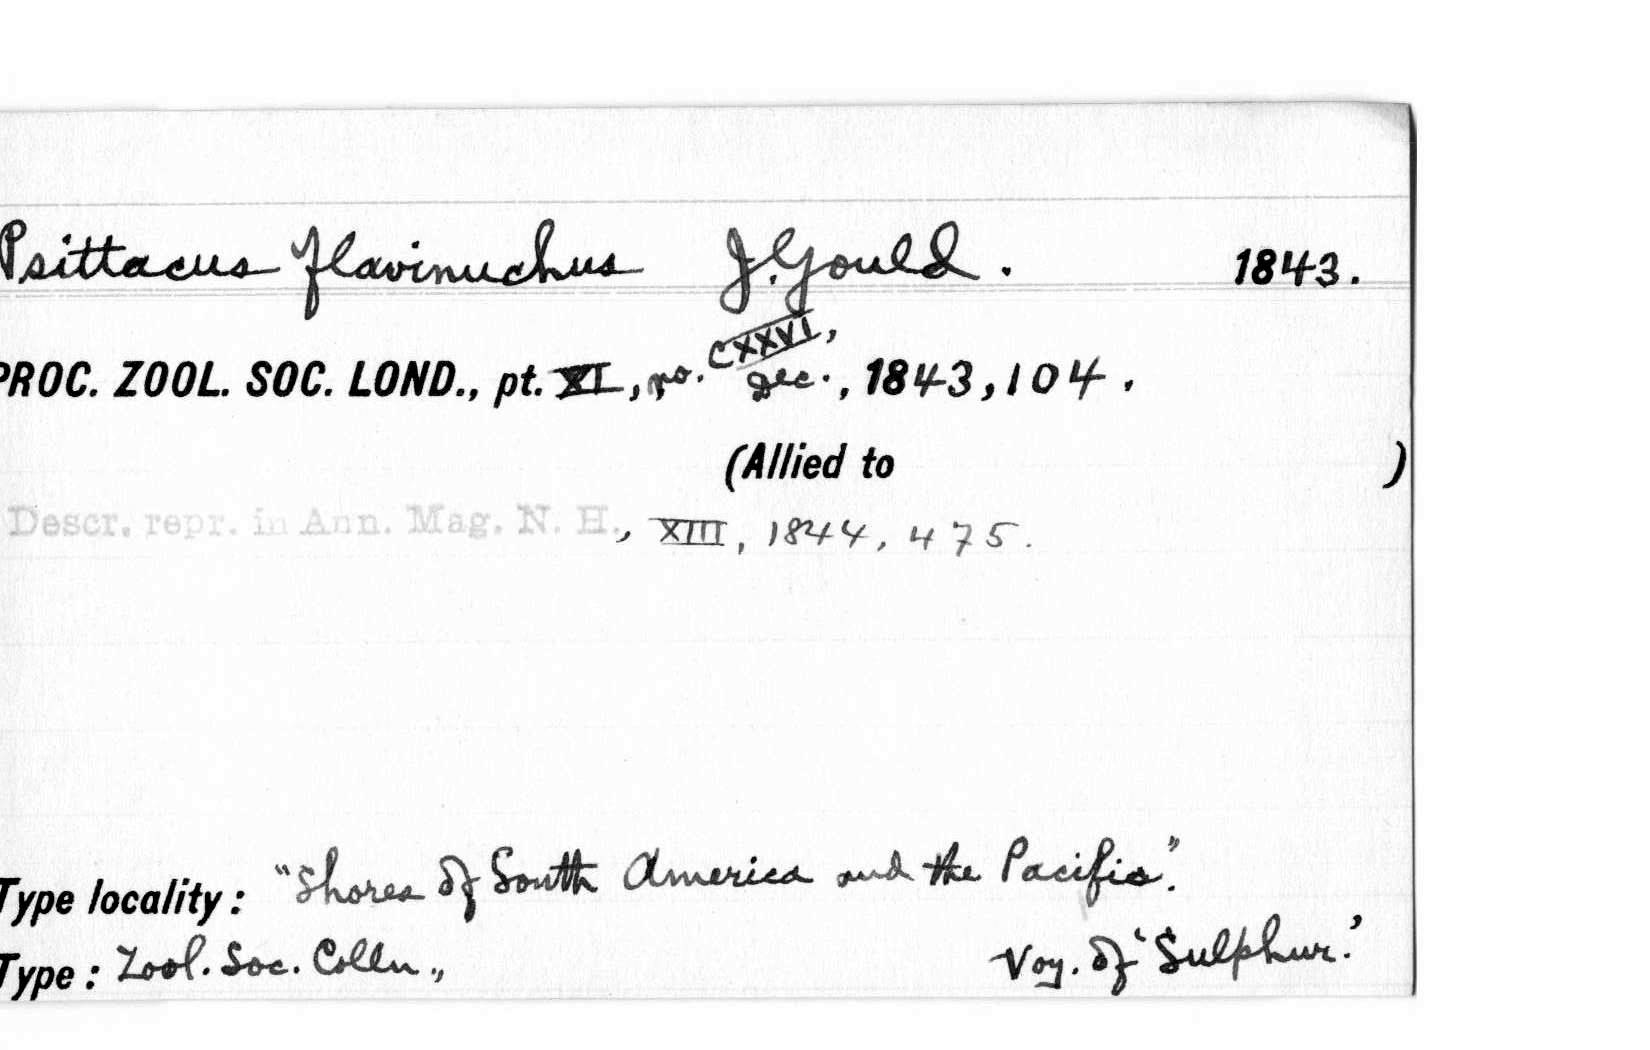 Psittacus flavinuchus J. Gould. 1843.
PROC. ZOOL. SOC. LOND., pt. XI, no. CXXVI, Dec., 1843, 104.
(Allied to )
Descr. repr. in Ann. Mag. N. H., XIII, 1844, 475.
Type locality: "Shores of South America and the Pacific".
Type: Zool. Soc. Colln., Voy. of 'Sulphur.'